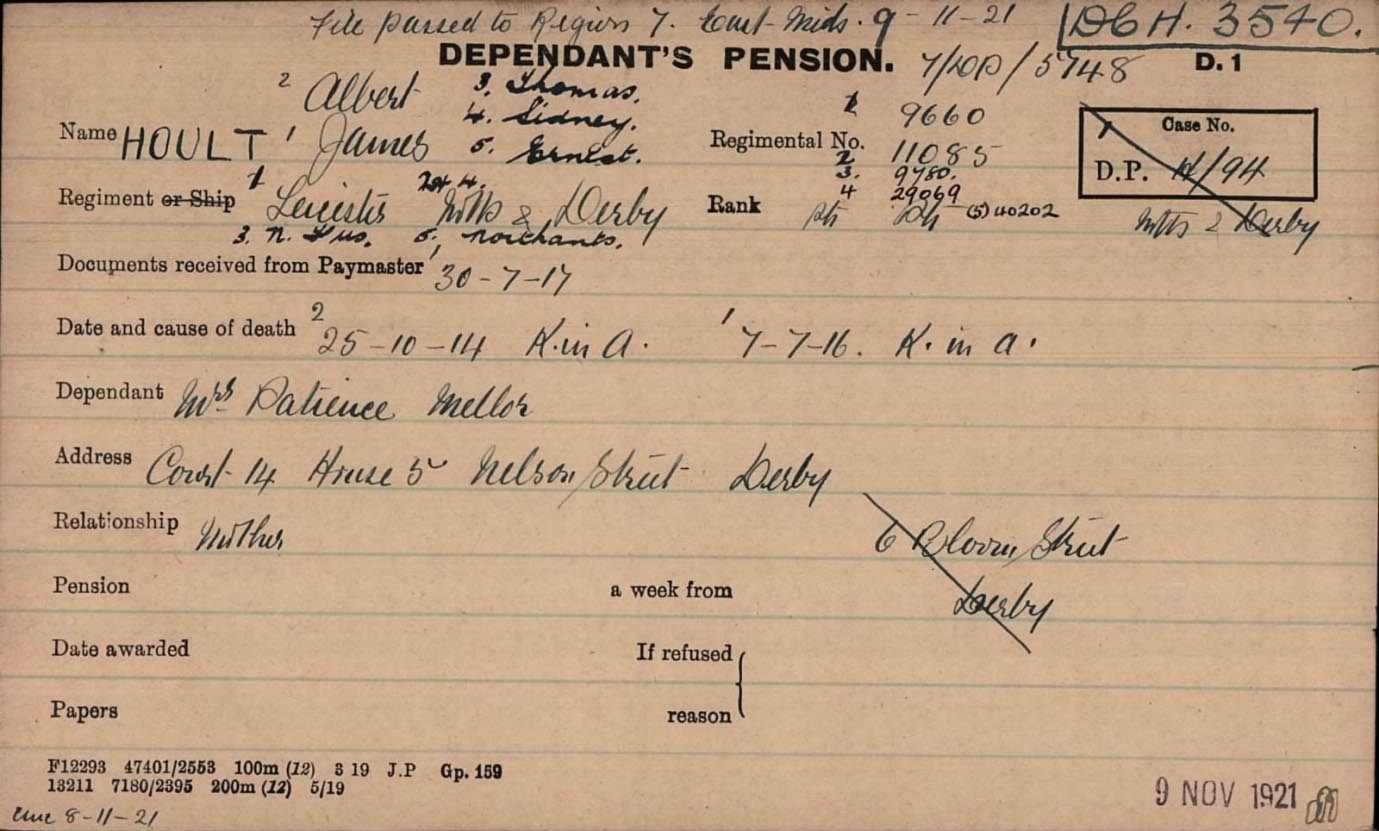 File passed to Region 7. East Mids. 9-11-21
DCH. 3540.
DEPENDANT'S PENSION. 7/10D/5748 D. 1
2 Albert 3. Thomas.
4. Sidney.
Name HOULT 1 James 5. Ernest.
Regimental No. 1 9660
2 11085
3. 9780.
4 29069
(5) 40202
Case No.
D.P. 14/94
Notts & Derby
Regiment or Ship 1 Leicesters 2 & 4. Notts & Derby
3. N. Fus. 5, Northants.
Rank Pte Pte
Documents received from Paymaster 1 30-7-17
Date and cause of death 2 25-10-14 K. in A. 1 7-7-16. K. in A.
Dependant Mrs Patience Mellor
Address Court 14 House 5 Nelson Street Derby
Relationship Mother
6 Bloom Street
Derby
Pension a week from
Date awarded If refused
Papers reason
F12293 47401/2553 100m (12) 3 19 J.P Gp. 159
13211 7180/2395 200m (12) 5/19
8-11-21
9 NOV 1921